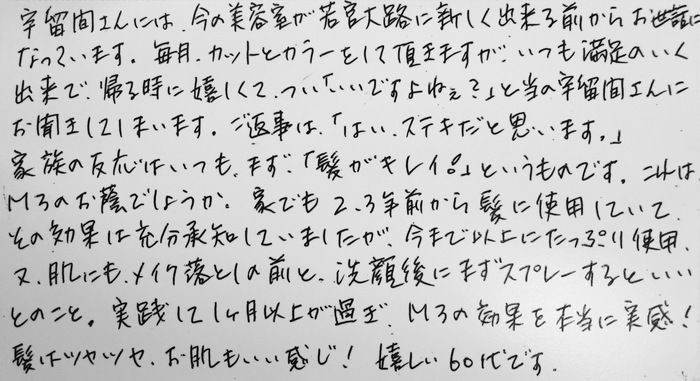 宇留間さんには、今の美容室が若宮大路に新しく出来る前からお世話に
なっています。毎月、カットとカラーをして頂きますが、いつも満足のいく
出来で、帰る時に嬉しくて、つい「いいですよねぇ?」と当の宇留間さんに
お聞きしてしまいます。ご返事は、「はい、ステキだと思います。」
家族の反応はいつも、まず、「髪がキレイ。」というものです。これは
M3のお蔭でしょうか。家でも2、3年前から髪に使用していて、
その効果は充分承知していましたが、今まで以上にたっぷり使用、
又、肌にも、メイク落としの前と、洗顔後にまずスプレーするといい
とのこと。実践して1ヶ月以上が過ぎ、M3の効果を本当に実感!
髪はツヤツヤ、お肌もいい感じ! 嬉しい60代です。